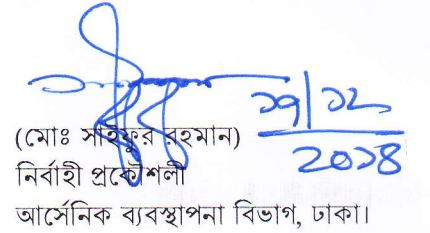 ১৭/১২
২০১৪
(মোঃ সাইফুর রহমান)
নির্বাহী প্রকৌশলী
আর্সেনিক ব্যবস্থাপনা বিভাগ, ঢাকা।